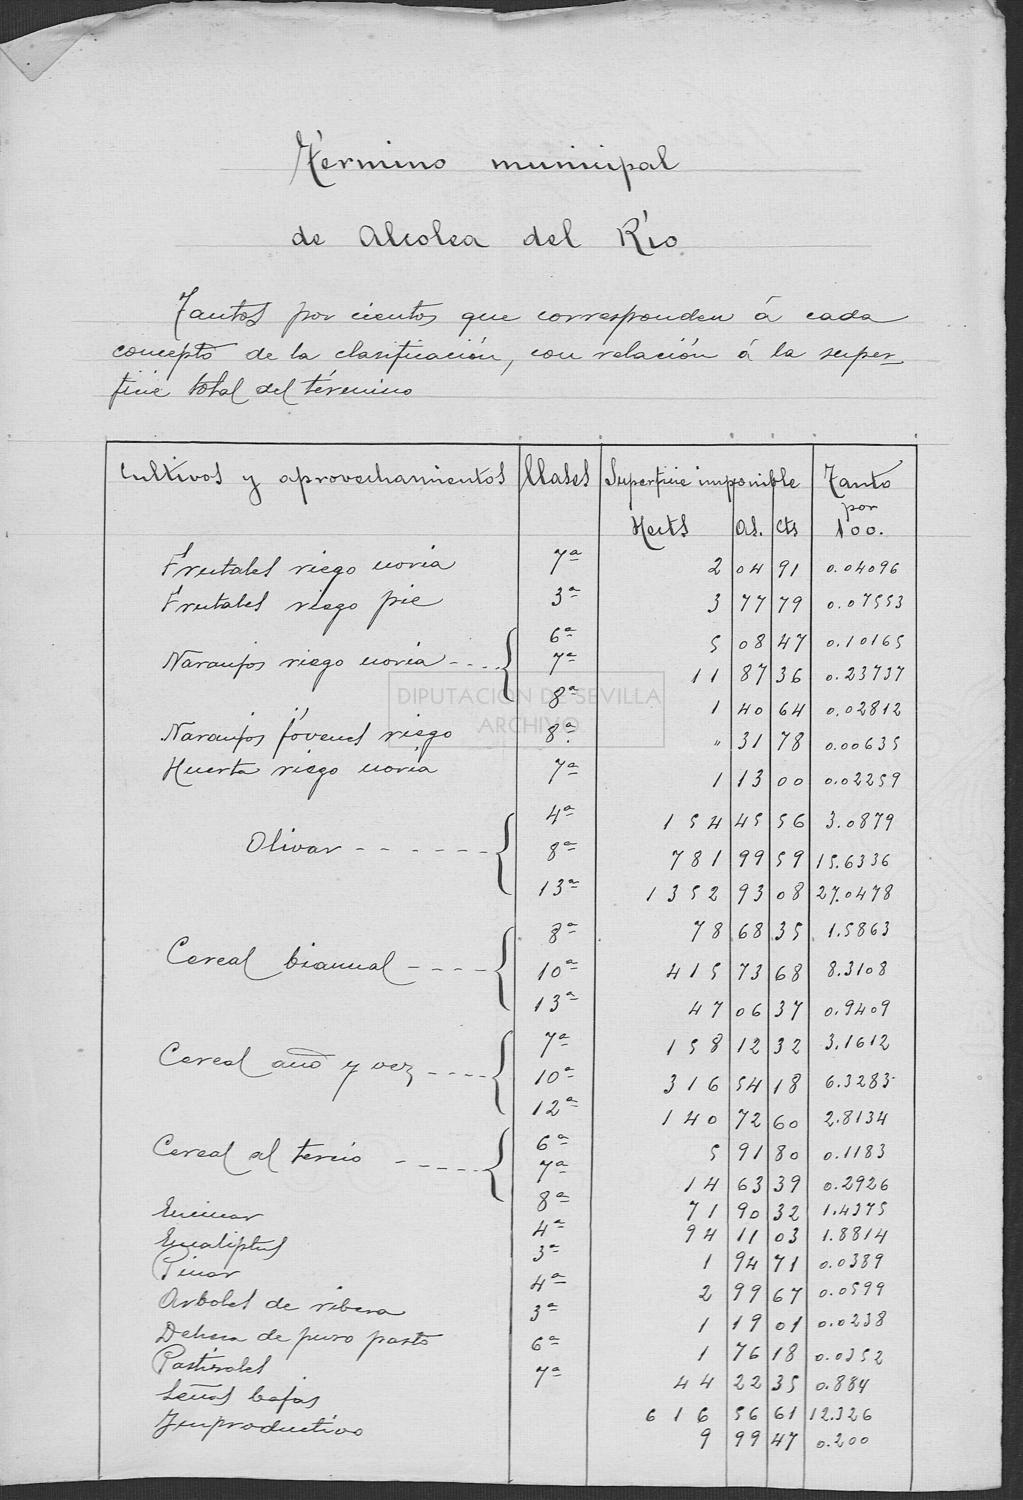 Término municipal
de Alcolea del Río
Tantos por cientos que corresponden á cada
concepto de la clasificación, con relación á la super-
ficie total del término
Cultivos y aprovechamientos Clases Superficie imponible Tanto por 100.
Hects As. Cts
Frutales riego noria 7ª 2 04 91 0.04096
Frutales riego pie 3ª 3 77 79 0.07553
6ª 5 08 47 0.10165
Naranjos riego noria 7ª 11 87 36 0.23737
8ª 1 40 64 0.02812
Naranjos jóvenes riego 8ª " 31 78 0.00635
Huerta riego noria 7ª 1 13 00 0.02259
4ª 154 45 56 3.0879
Olivar 8ª 781 99 59 15.6336
13ª 1352 93 08 27.0478
8ª 78 68 35 1.5863
Cereal bianual 10ª 415 73 68 8.3108
13ª 47 06 37 0.9409
7ª 158 12 32 3.1612
Cereal año y vez 10ª 316 54 18 6.3283
12ª 140 72 60 2.8134
6ª 5 91 80 0.1183
Cereal al tercio 7ª 14 63 39 0.2926
8ª 71 90 32 1.4375
Encinar 4ª 94 11 03 1.8814
Eucaliptus 3ª 1 94 71 0.0389
Pinar 4ª 2 99 67 0.0599
Arboles de ribera 3ª 1 19 01 0.0238
Dehesa de puro pasto 6ª 1 76 18 0.0352
Pastizales 7ª 44 22 35 0.884
Leñas bajas 616 56 61 12.326
Improductivo 9 99 47 0.200
DIPUTACIÓN DE SEVILLA
ARCHIVO